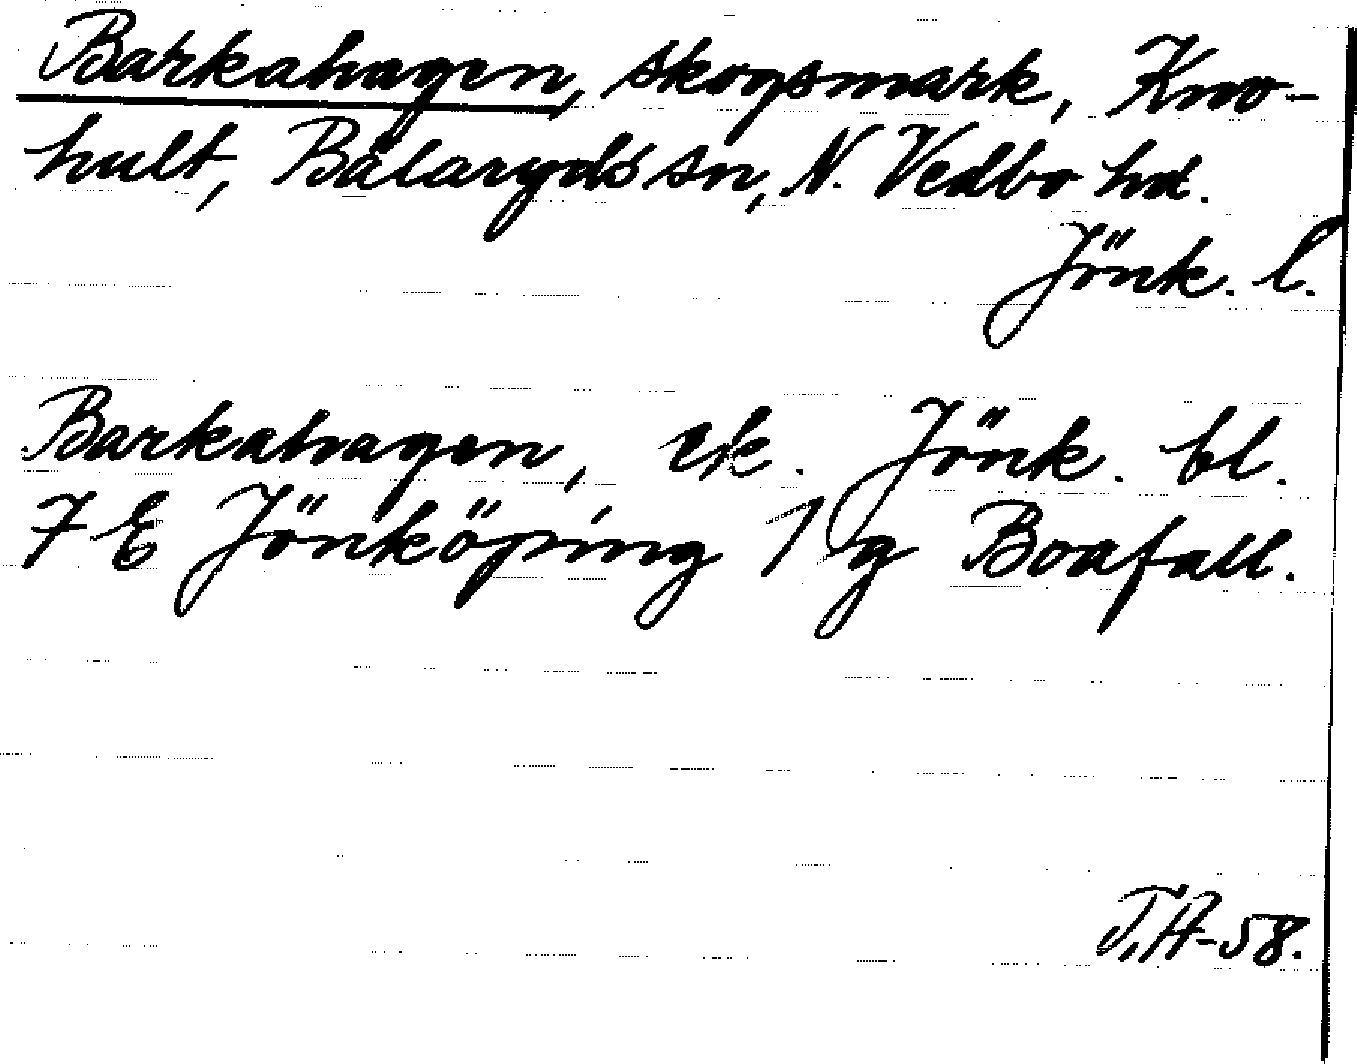 Barkahagen, skogsmark, Kno-
hult, Bälaryds sn, N. Vedbo hd.
Jönk. l.
Barkahagen, ek. Jönk. bl.
7 E Jönköping 1 g Boafall.
T.A-58.